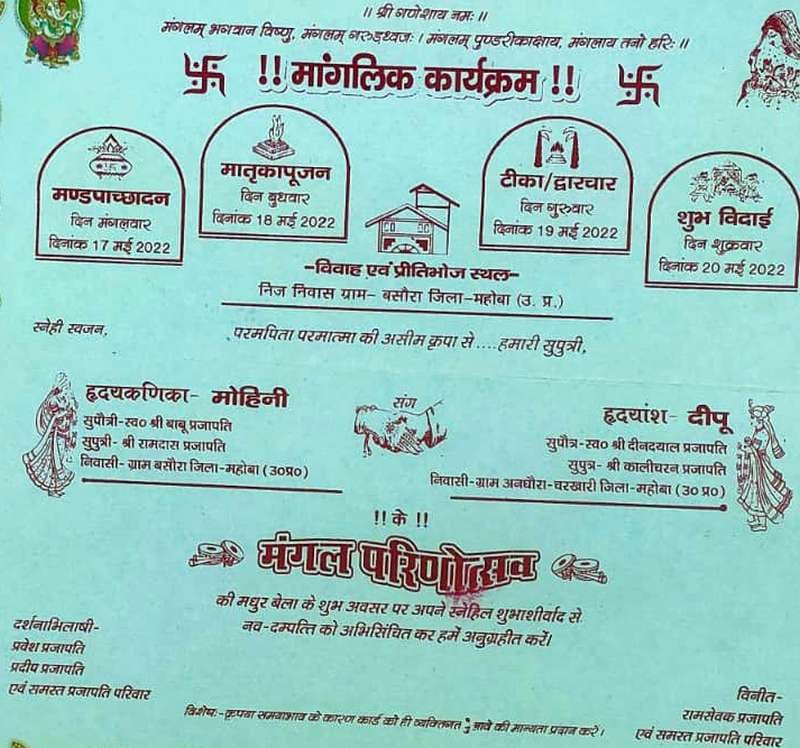 ।। श्री गणेशाय नमः ।।
मंगलम् भगवान विष्णु, मंगलम् गरुड़ध्वजः। मंगलम् पुण्डरीकाक्षाय, मंगलाय तनो हरिः ।।
!! मांगलिक कार्यक्रम !!
मण्डपाच्छादन
दिन मंगलवार
दिनांक 17 मई 2022
मातृकापूजन
दिन बुधवार
दिनांक 18 मई 2022
टीका/द्वारचार
दिन गुरुवार
दिनांक 19 मई 2022
शुभ विदाई
दिन शुक्रवार
दिनांक 20 मई 2022
-विवाह एवं प्रीतिभोज स्थल-
निज निवास ग्राम- बसौरा जिला-महोबा (उ. प्र.)
स्नेही स्वजन,
परमपिता परमात्मा की असीम कृपा से ....हमारी सुपुत्री,
हृदयकणिका- मोहिनी
सुपौत्री-स्व० श्री बाबू प्रजापति
सुपुत्री- श्री रामदास प्रजापति
निवासी- ग्राम बसौरा जिला-महोबा (उ०प्र०)
संग
हृदयांश- दीपू
सुपौत्र-स्व० श्री दीनदयाल प्रजापति
सुपुत्र- श्री कालीचरन प्रजापति
निवासी-ग्राम अनघौरा-चरखारी जिला-महोबा (उ० प्र०)
!! के !!
मंगल परिणोत्सव
की मधुर बेला के शुभ अवसर पर अपने स्नेहिल शुभाशीर्वाद से
नव-दम्पत्ति को अभिसिंचित कर हमें अनुग्रहीत करें।
दर्शनाभिलाषी-
प्रवेश प्रजापति
प्रदीप प्रजापति
एवं समस्त प्रजापति परिवार
विनीत-
रामसेवक प्रजापति
एवं समस्त प्रजापति परिवार
विशेष:-कृपया समयाभाव के कारण कार्ड को ही व्यक्तिगत बुलावे की मान्यता प्रदान करें।